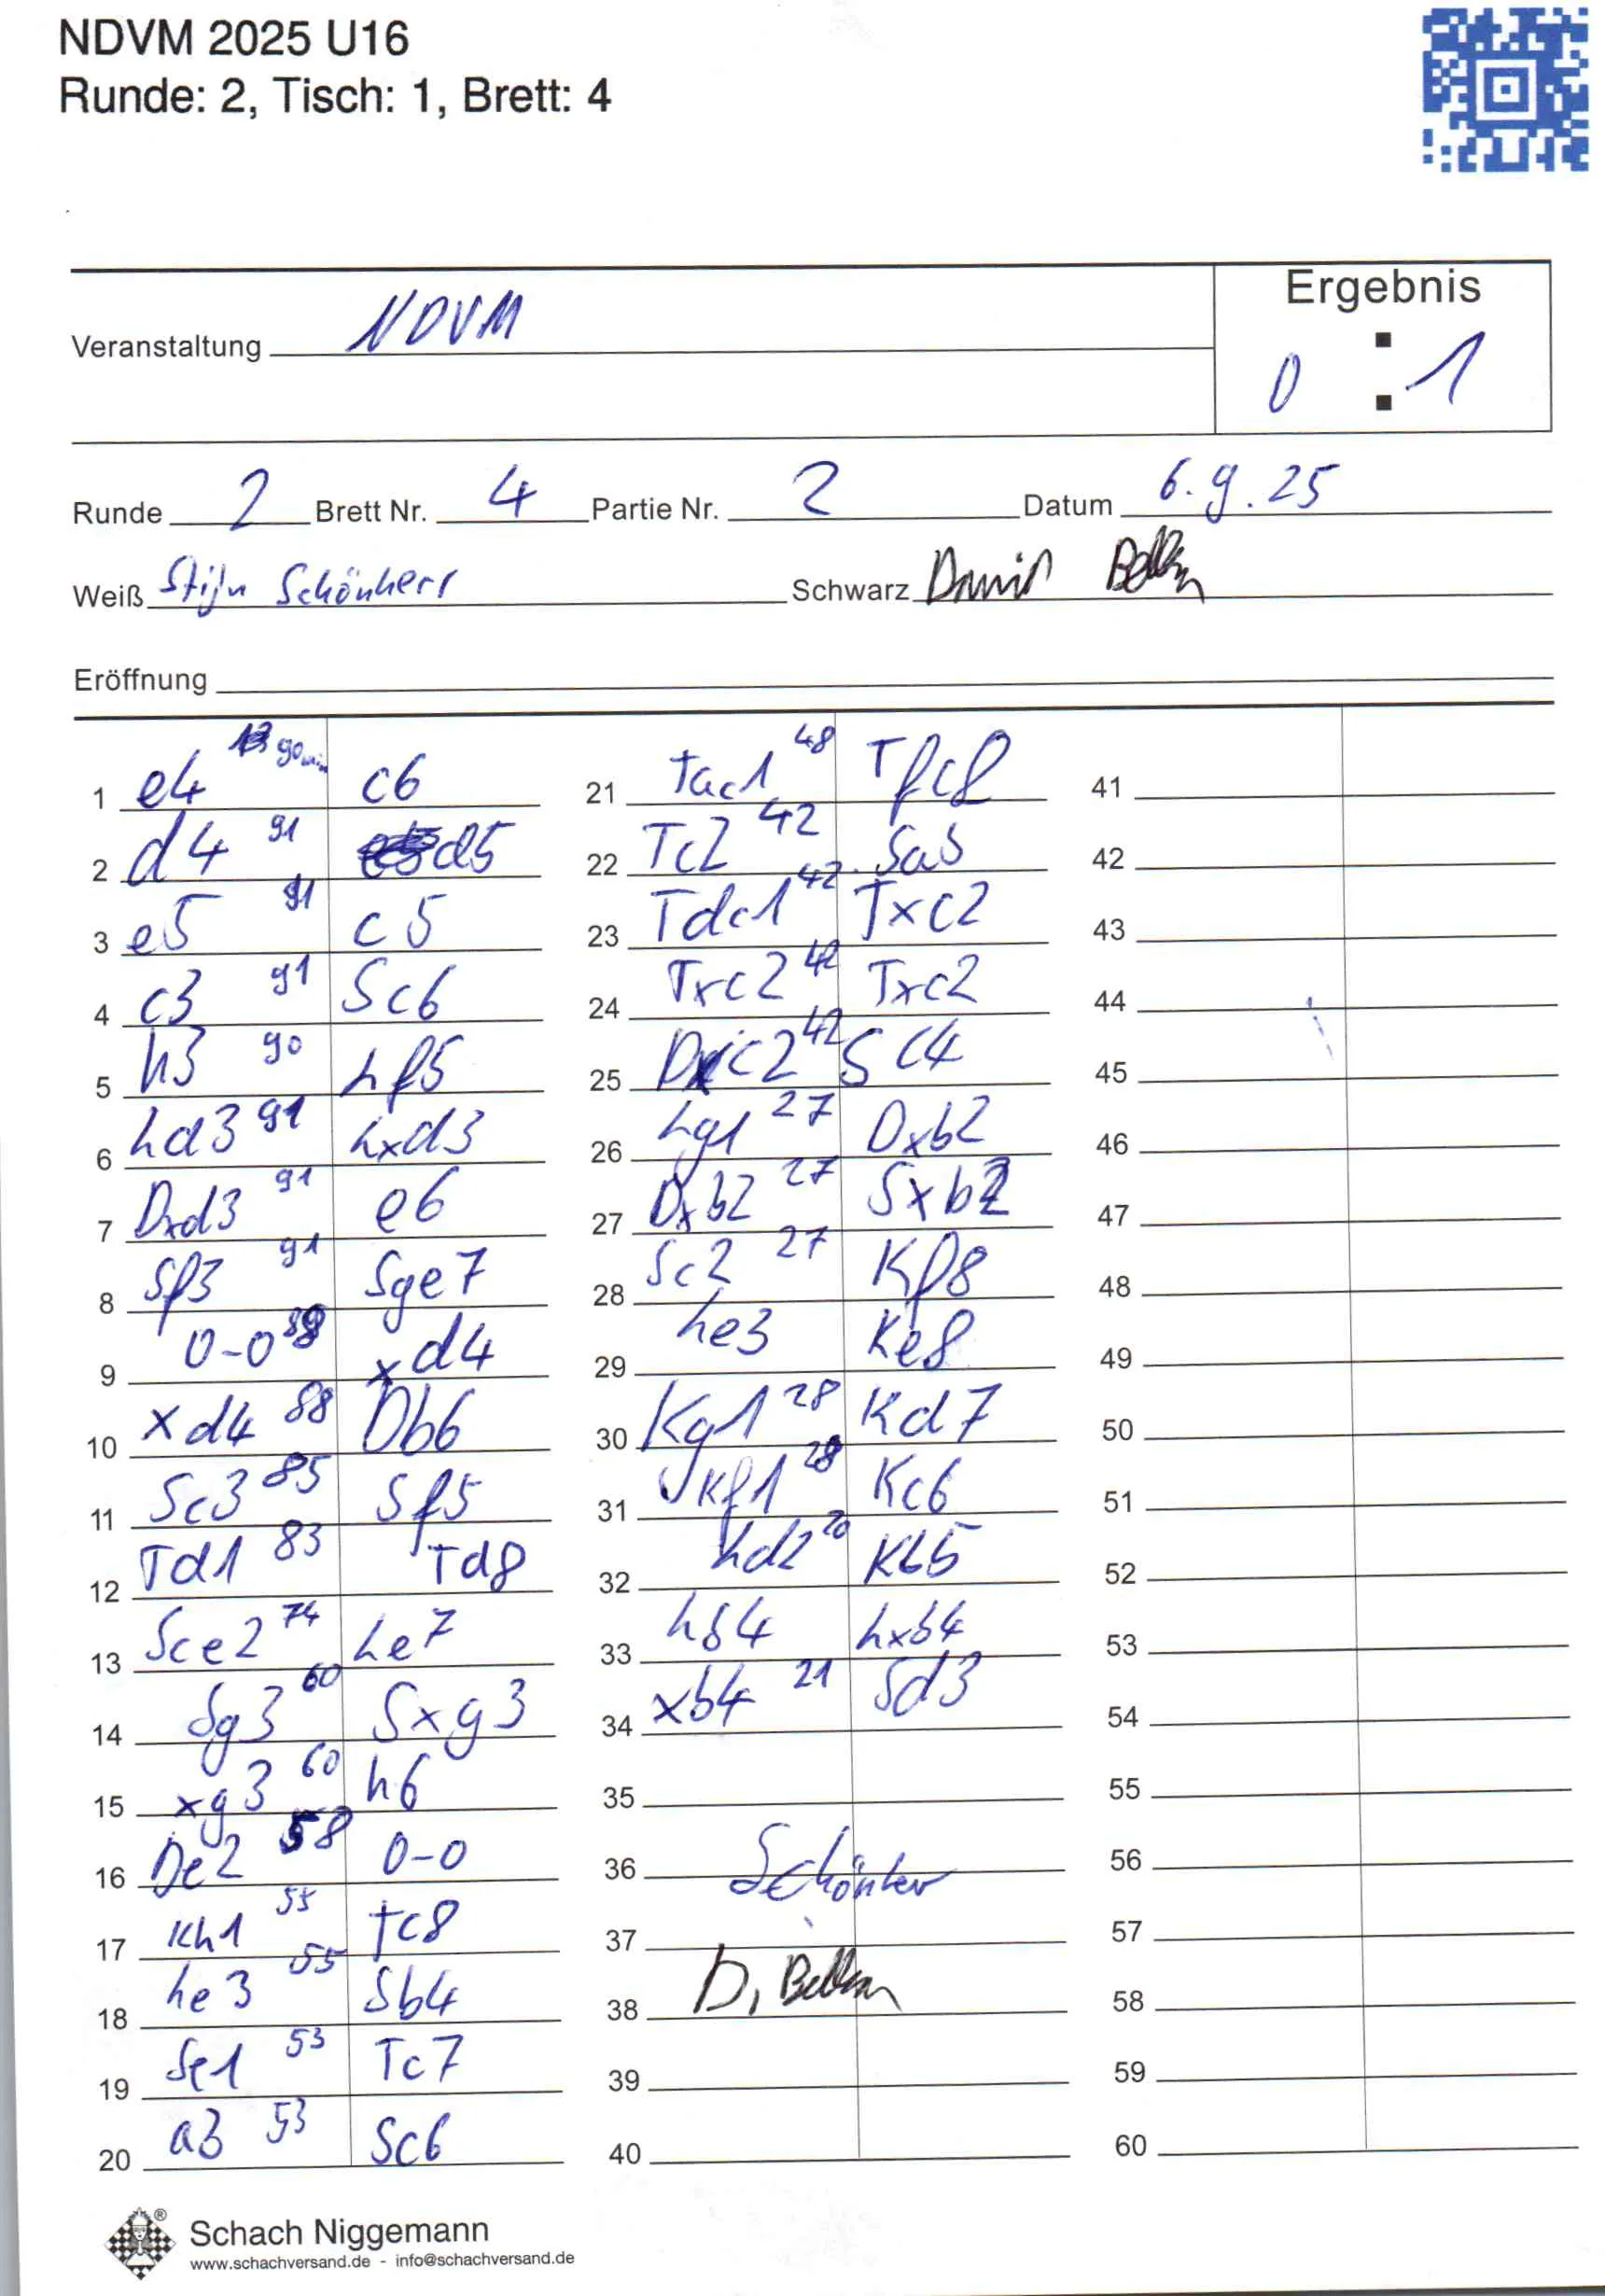 NDVM 2025 U16
Runde: 2, Tisch: 1, Brett: 4
Ergebnis
Veranstaltung NDVM
0 : 1
Runde 2 Brett Nr. 4 Partie Nr. 2 Datum 6.9.25
Weiß Stijn Schönherr Schwarz David
Eröffnung
1 e4 90min c6 21 Tac1 48 Tfc8 41
2 d4 91 d5 22 Tc2 42 Sa5 42
3 e5 91 c5 23 Tdc1 42 Txc2 43
4 c3 91 Sc6 24 Txc2 42 Txc2 44
5 h3 90 Lf5 25 Dxc2 42 Sc4 45
6 Ld3 91 Lxd3 26 Lg1 27 Dxb2 46
7 Dxd3 91 e6 27 Dxb2 27 Sxb2 47
8 Sf3 91 Sge7 28 Sc2 27 Kf8 48
9 0-0 88 xd4 29 Le3 Ke8 49
10 xd4 88 Db6 30 Kg1 28 Kd7 50
11 Sc3 85 Sf5 31 Kf1 28 Kc6 51
12 Td1 83 Td8 32 Ld2 20 Kb5 52
13 Sce2 74 Le7 33 Lb4 Lxb4 53
14 Sg3 60 Sxg3 34 xb4 21 Sd3 54
15 xg3 60 h6 35 55
16 De2 58 0-0 36 56
17 Kh1 55 Tc8 37 57
18 Le3 55 Sb4 38 58
19 Se1 53 Tc7 39 59
20 a3 53 Sc6 40 60
Schach Niggemann
www.schachversand.de - info@schachversand.de